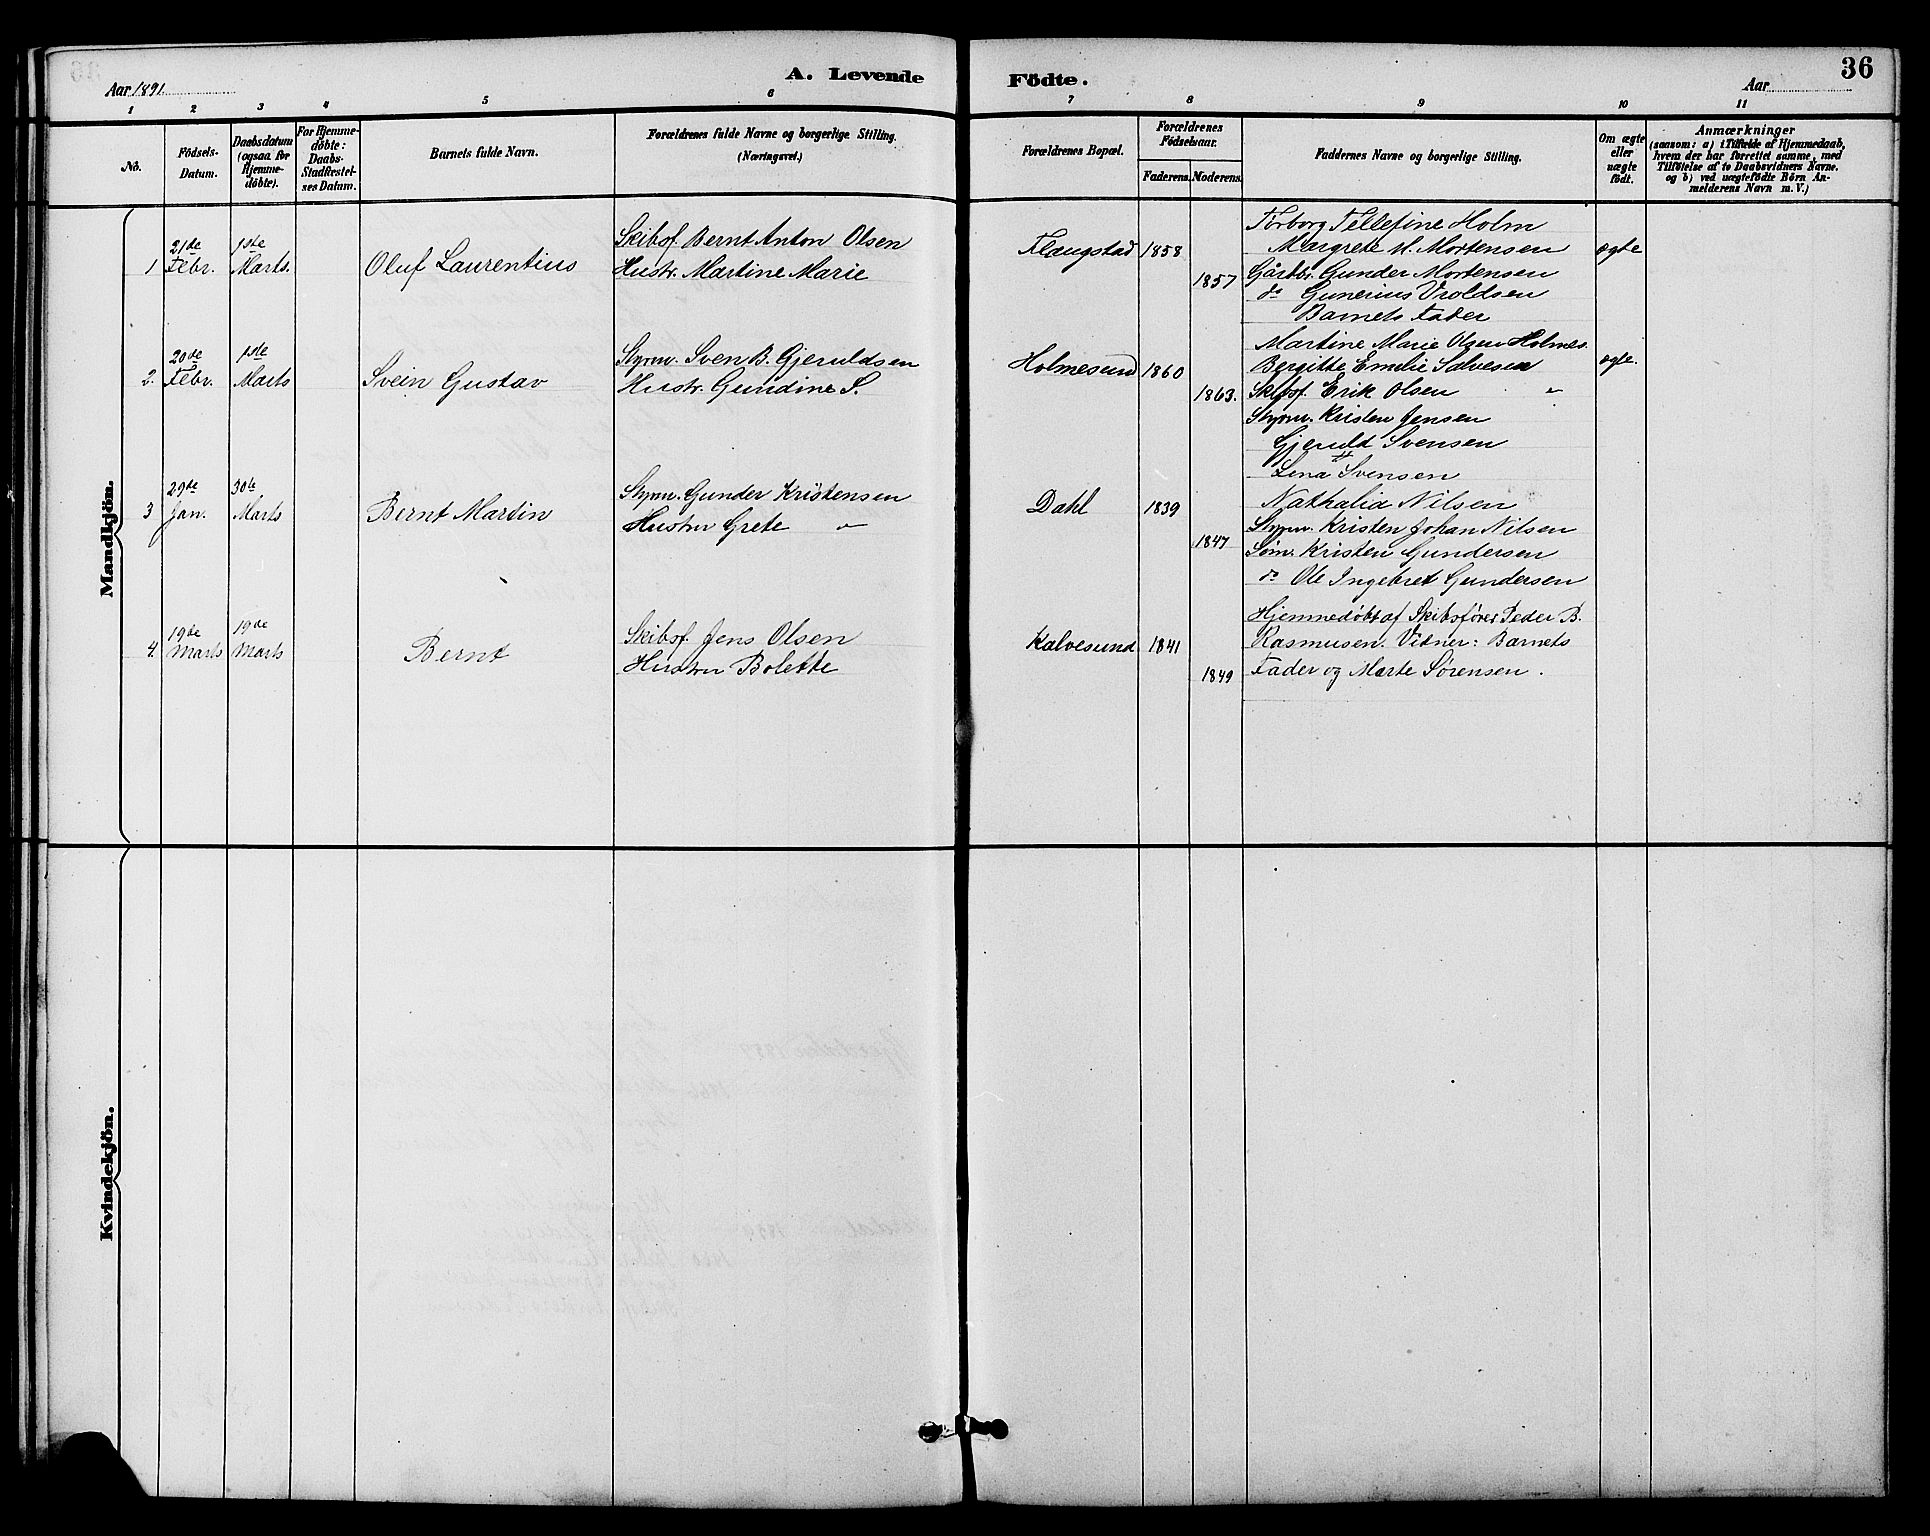 A. Levende Födte.
36
Aar 1891.
Aar
1 2 3 4 5 6 7 8 9 10 11
No.
Födsels-Datum.
Daabsdatum (ogsaa for Hjemme-döbte).
For Hjemme-döbte: Daabs-Stadfæstel-ses Datum.
Barnets fulde Navn.
Forældrenes fulde Navne og borgerlige Stilling.
(Næringsvei.)
Forældrenes Bopæl.
Forældrenes Födselsaar.
Faderens. Moderens.
Faddernes Navne og borgerlige Stilling.
Om ægte eller uægte födt.
Anmærkninger
(saasom: a) i Tilfælde af Hjemmedaab,
hvem der har forrettet samme, med
Tilföielse af to Daabsvidners Navne,
og b) ved uægtefödte Börn An-
melderens Navn m. V.)
Mandkjön.
1 21de Febr. 1ste Marts. Oluf Laurentius
Skibsf. Bernt Anton Olsen
Hustr. Martine Marie
Flaugstad 1858 1857
Torborg Tellefine Holm
Margrete M. Mortensen
Gårdbr. Gunder Mortensen
do Gunerius Vroldsen
Barnets Fader
ægte
2. 20de Febr. 1ste Marts Svein Gustav
Styrm. Sven B. Gjeruldsen
Hustr. Gundine S.
Holmesund 1860 1863.
Martine Marie Olsen Holmes.
Bergitte Emelie Salvesen
Skibsf. Erik Olsen "
Styrm. Kristen Jensen
Gjeruld Svensen
Lena Svensen
ægte.
3 29de Jan. 30te Marts Bernt Martin
Styrm. Gunder Kristensen
Hustru Grete "
Dahl 1839 1847
Nathalia Nilsen
Styrm. Kristen Johan Nilsen
Søm. Kristen Gundersen
do Ole Ingebret Gundersen
4. 19de Marts 19de Marts Bernt
Skibsf. Jens Olsen
Hustru Bolette
Kalvesund 1841 1849
Hjemmedøbt af Skibsfører Peder B.
Rasmusen. Vidner: Barnets
Fader og Marte Sørensen.
Kvindekjön.